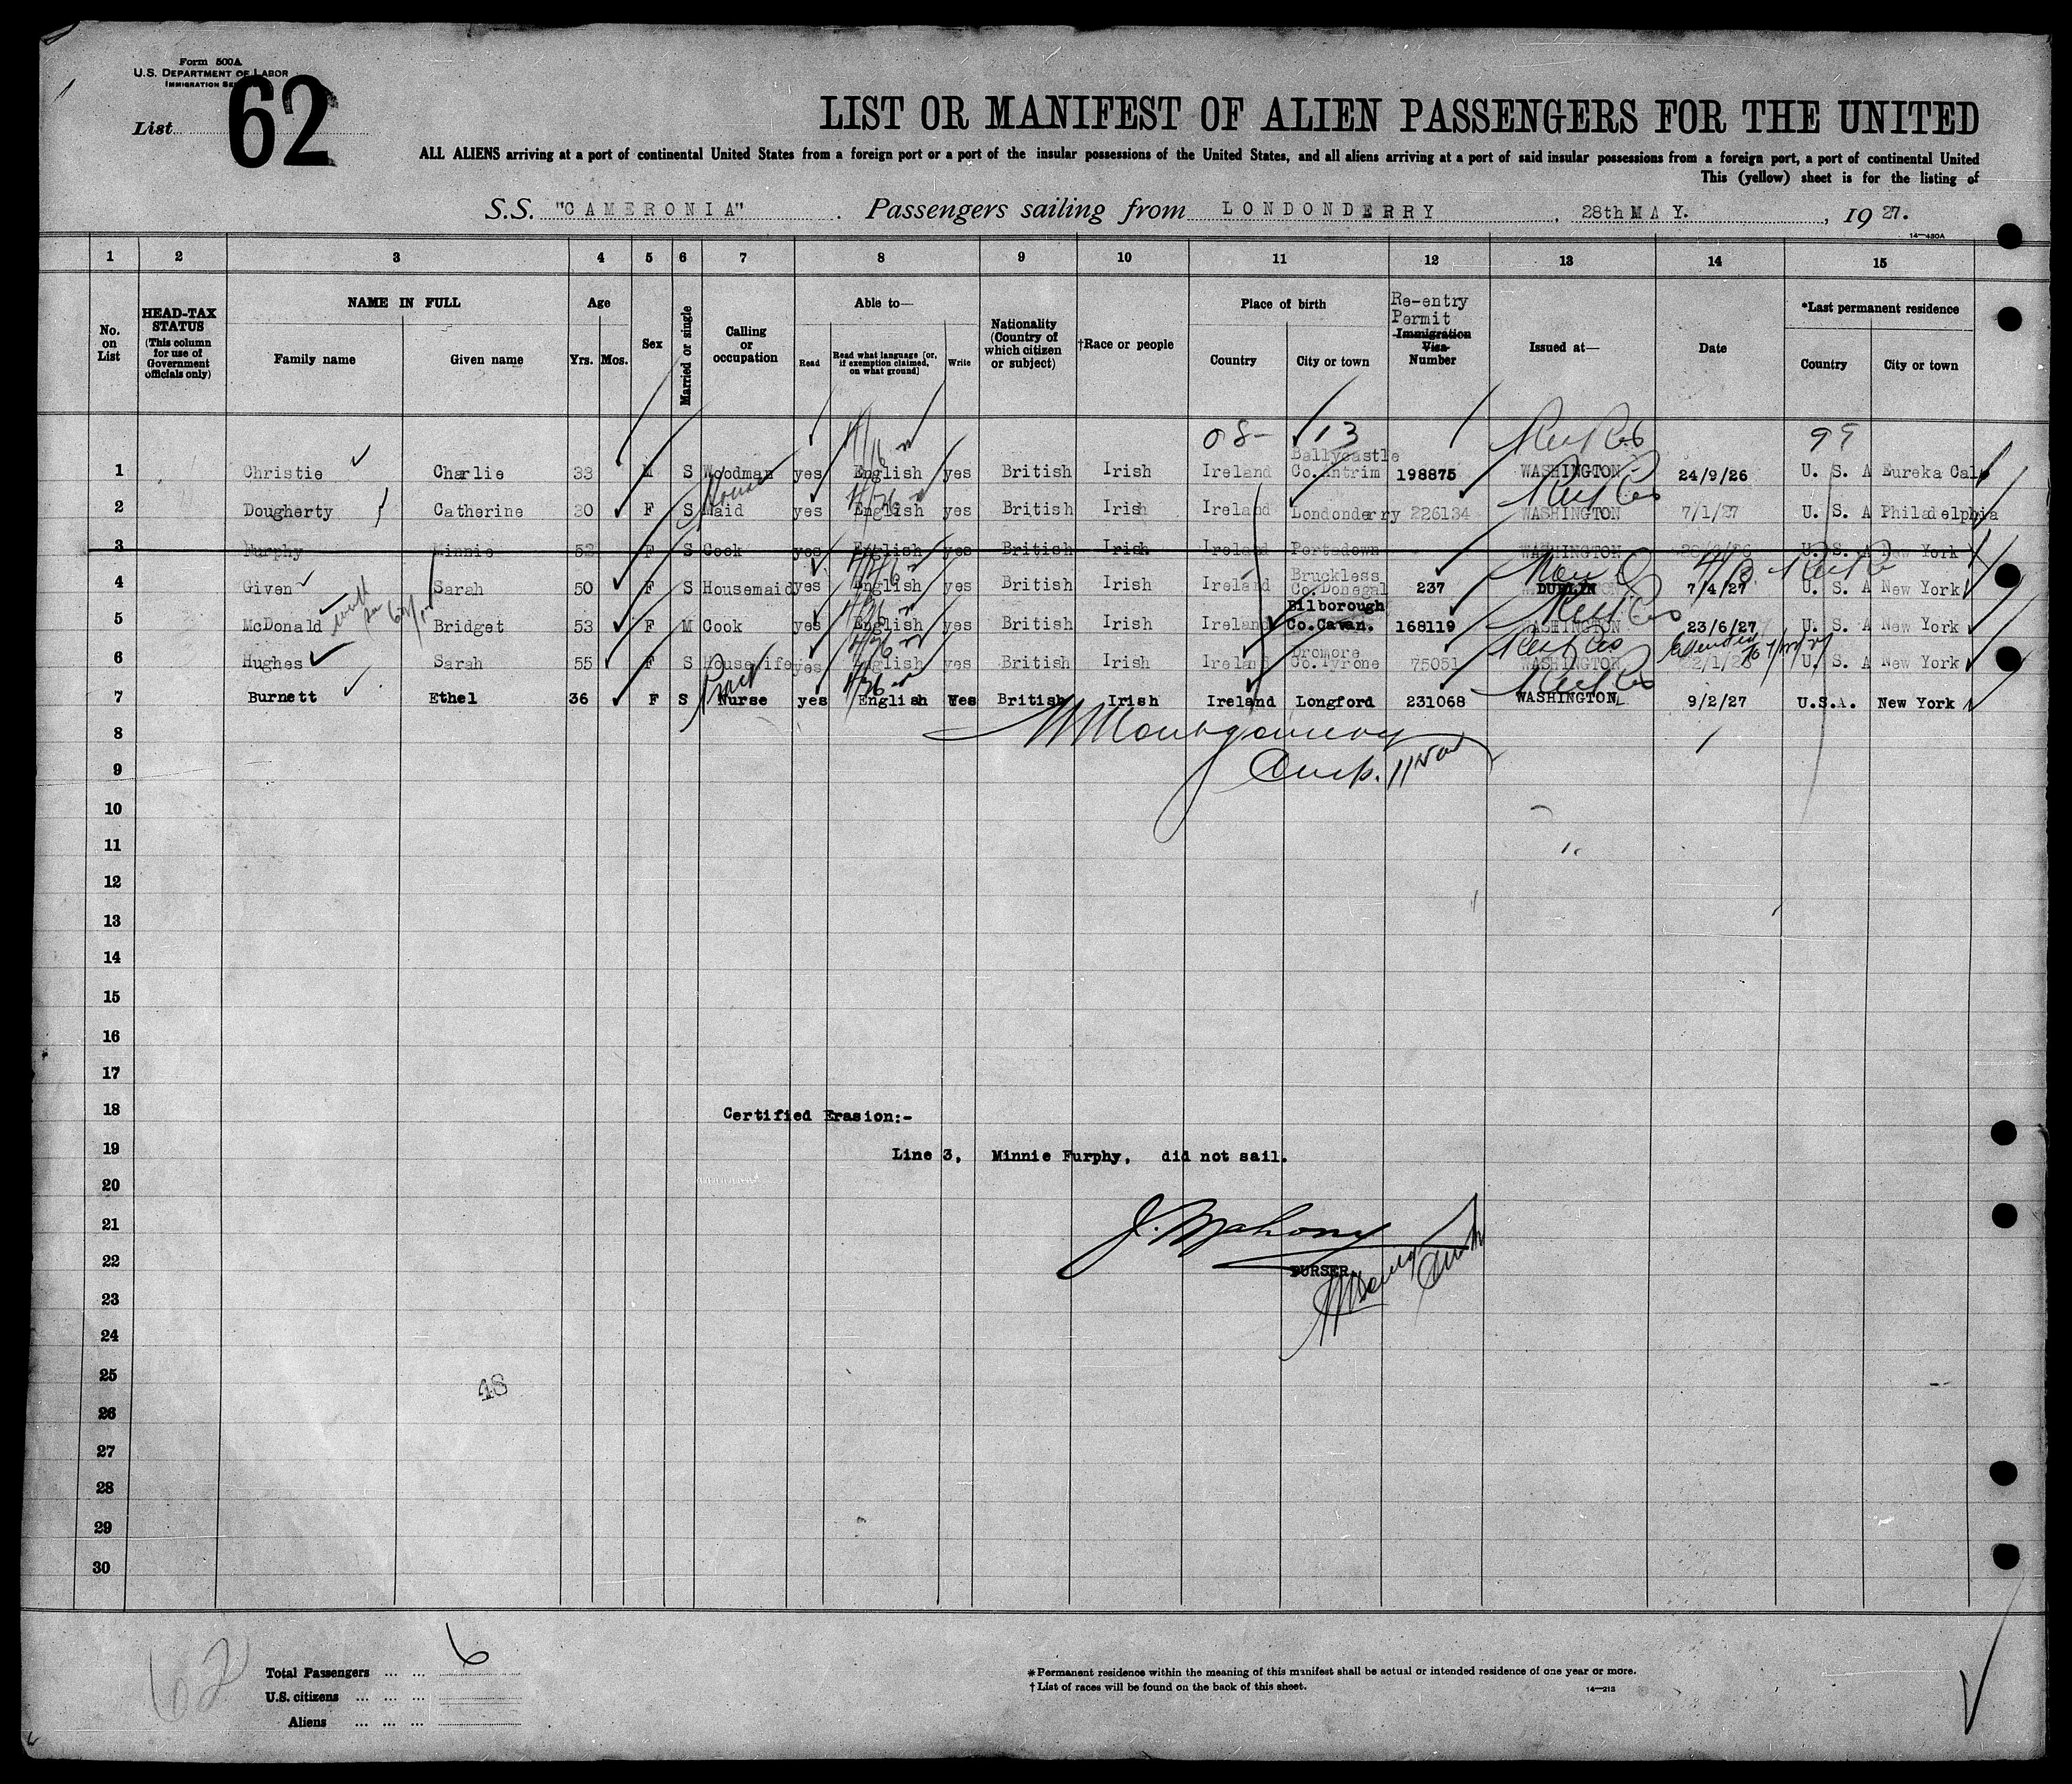 Form 500A
U.S. DEPARTMENT OF LABOR
IMMIGRATION
List 62
LIST OR MANIFEST OF ALIEN PASSENGERS FOR THE UNITED
ALL ALIENS arriving at a port of continental United States from a foreign port or a port of the insular possessions of the United States, and all aliens arriving at a port of said insular possessions from a foreign port, a port of continental United
This (yellow) sheet is for the listing of
S.S. "CAMERONIA". Passengers sailing from LONDONDERRY, 28th MAY., 1927.
14—480A
1 2 3 4 5 6 7 8 9 10 11 12 13 14 15
No. on List
HEAD-TAX STATUS (This column for use of Government officials only)
NAME IN FULL Family name Given name
Age Yrs. Mos.
Sex
Married or single
Calling or occupation
Able to— Read Read what language [or, if exemption claimed, on what ground] Write
Nationality (Country of which citizen or subject)
†Race or people
Place of birth Country City or town
Re-entry Permit Immigration Visa Number
Issued at—
Date
*Last permanent residence Country City or town
08- 13 99
1 Christie Charlie 33 M S Woodman yes English yes British Irish Ireland Ballycastle Co.Antrim 198875 WASHINGTON 24/9/26 U. S. A Eureka Cal
2 Dougherty Catherine 30 F S House Maid yes English yes British Irish Ireland Londonderry 226134 WASHINGTON 7/1/27 U. S. A Philadelphia
3 Furphy Minnie 52 F S Cook yes English yes British Irish Ireland Portadown WASHINGTON U. S. A New York
4 Given Sarah 50 F S Housemaid yes English yes British Irish Ireland Bruckless Co.Donegal 237 DUBLIN 7/4/27 U. S. A New York
5 McDonald Bridget 53 F M Cook yes English yes British Irish Ireland Bilborough Co.Cavan. 168119 WASHINGTON 23/6/27 U. S. A New York
6 Hughes Sarah 55 F S Housewife yes English yes British Irish Ireland Dromore Co.Tyrone 75051 WASHINGTON U. S. A New York
7 Burnett Ethel 36 F S Nurse yes English Yes British Irish Ireland Longford 231068 WASHINGTON 9/2/27 U.S.A. New York
8
9
10
11
12
13
14
15
16
17
18 Certified Erasion:-
19 Line 3, Minnie Furphy, did not sail.
20
21 J. Mahony
22 PURSER.
23
24
25 48
26
27
28
29
30
62
Total Passengers ... ... 6
U.S. citizens ... ... ...
Aliens ... ... ...
*Permanent residence within the meaning of this manifest shall be actual or intended residence of one year or more.
†List of races will be found on the back of this sheet.
14—213